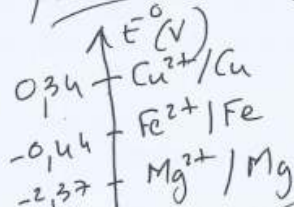 E⁰(V)
0,34 Cu²⁺/Cu
-0,44 Fe²⁺/Fe
-2,37 Mg²⁺/Mg